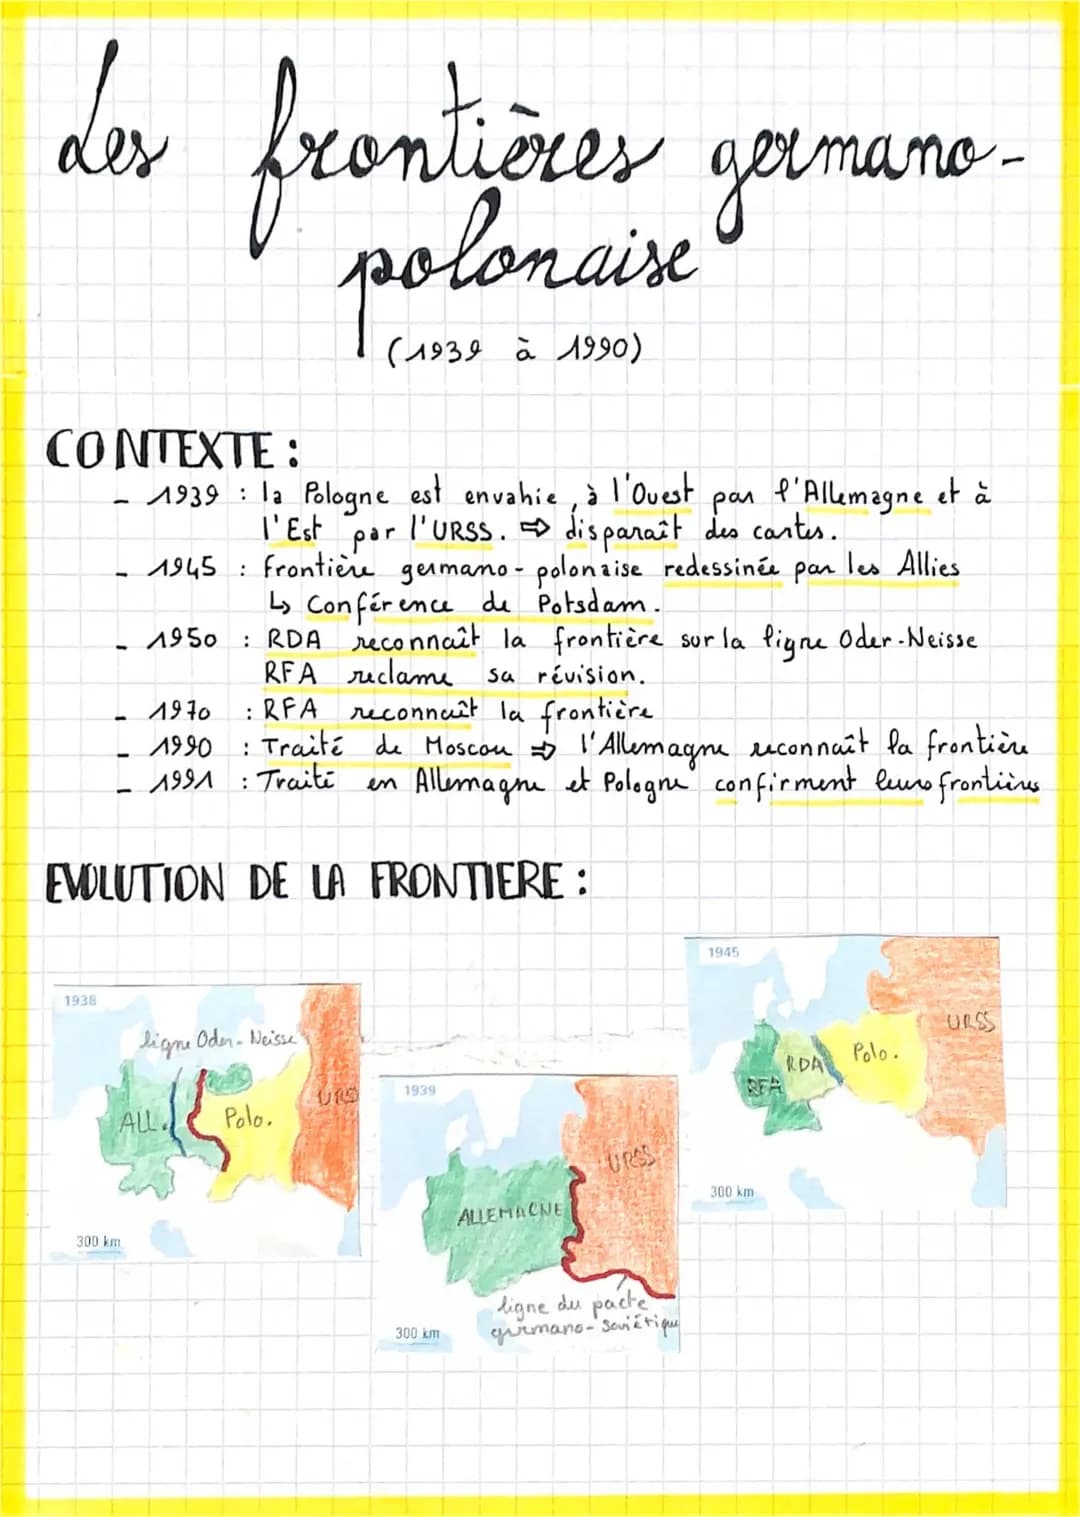 Les frontières germano-
polonaise
(1939 à 1990)
CONTEXTE :
- 1939 : la Pologne est envahie, à l'Ouest par l'Allemagne et à
l'Est par l'URSS. ⇒ disparaît des cartes.
- 1945 : Frontière germano-polonaise redessinée par les Allies
↳ Conférence de Potsdam.
- 1950 : RDA reconnaît la frontière sur la ligne Oder-Neisse
RFA reclame sa révision.
- 1970 : RFA reconnaît la frontière
- 1990 : Traité de Moscou ⇒ l'Allemagne reconnaît la frontière
- 1991 : Traité en Allemagne et Pologne confirment leurs frontières
EVOLUTION DE LA FRONTIERE :
1938
ligne Oder-Neisse
ALL.
Polo.
URS
300 km
1939
URSS
ALLEMAGNE
ligne du pacte
germano-soviétique
300 km
1945
URSS
Polo.
RDA
RFA
300 km